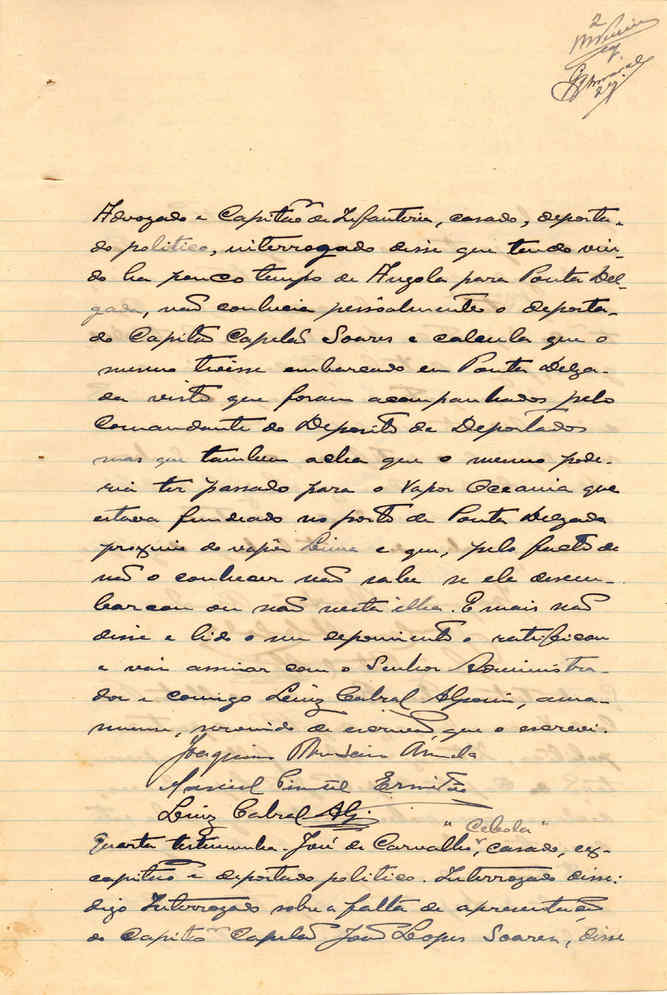 2
Advogado e Capitão de Infantaria, casado, deporta-
do politico, interrogado disse que tendo vin-
do ha pouco tempo de Angola para Ponta Del-
gada, não conhecia pessoalmente o deporta-
do Capitão Capelão Soares e calcula que o
mesmo tivesse embarcado em Ponta Delga-
da visto que foram acompanhados pelo
Comandante do Deposito de Deportados
mas que tambem acha que o mesmo pode-
ria ter passado para o Vapor Oceania que
estava fundeado no porto de Ponta Delgada
proximo do vapôr Lima e que, pelo facto de
não o conhecer não sabe se ele desem-
barcou ou não nesta ilha. E mais não
disse e lido o seu depoimento o ratificou
e vai assinar com o Senhor Administra-
dor e comigo Luiz Cabral ama-
nuense, servindo de escrivão, que o escrevi.
Joaquim
Manuel
Luiz Cabral
"Cebola"
Quarta testemunha. José de Carvalho, casado, ex-
capitão e deportado politico. Interrogado disse:
digo Interrogado sobre a falta de apresentação
do Capitão Capelão João Lopes Soares, disse